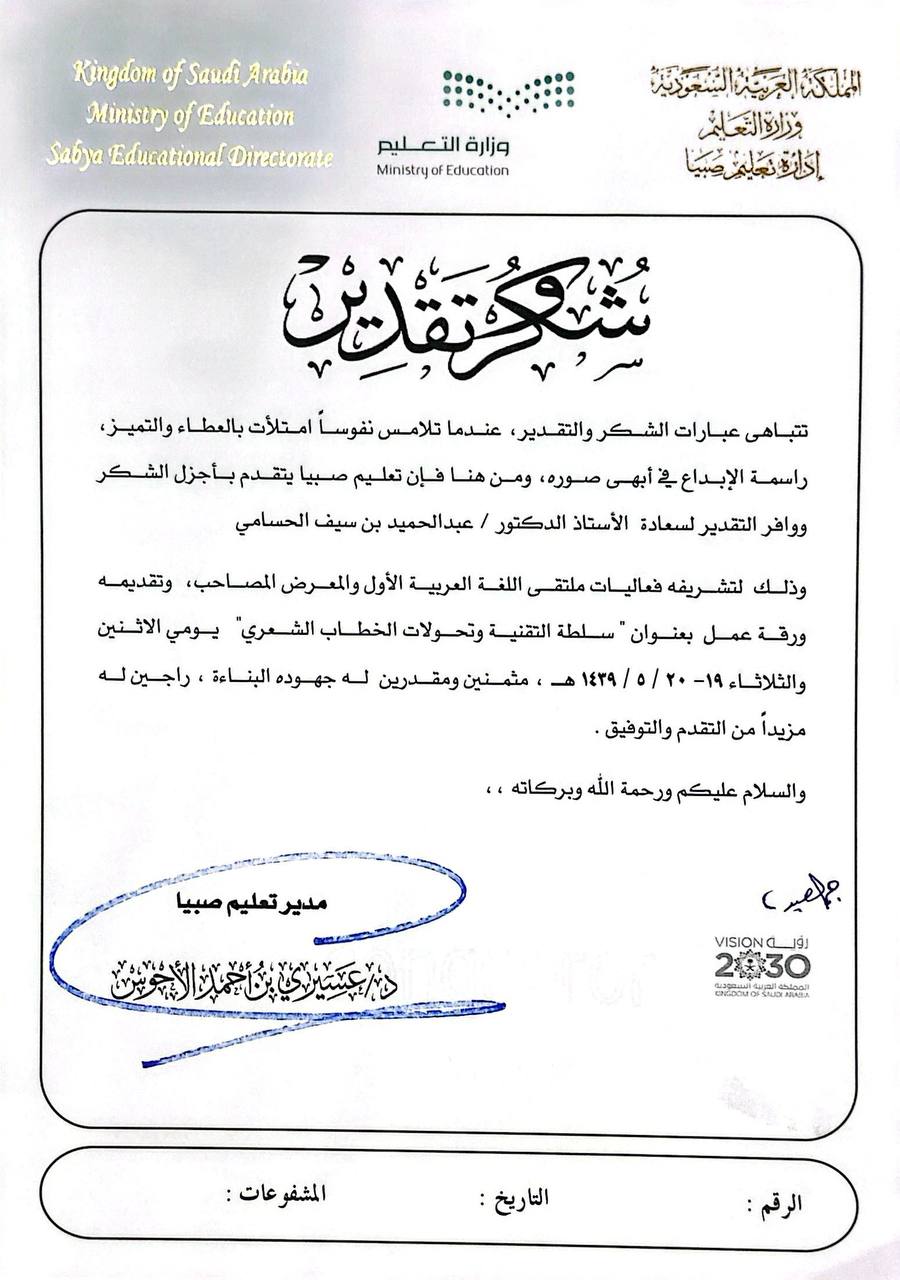 Kingdom of Saudi Arabia
Ministry of Education
Sabya Educational Directorate
وزارة التعليم
Ministry of Education
المملكة العربية السعودية
وزارة التعليم
إدارة تعليم صبيا
شكر وتقدير
تتباهى عبارات الشكر والتقدير، عندما تلامس نفوساً امتلأت بالعطاء والتميز،
راسمة الإبداع في أبهى صوره، ومن هنا فإن تعليم صبيا يتقدم بأجزل الشكر
ووافر التقدير لسعادة الأستاذ الدكتور / عبدالحميد بن سيف الحسامي
وذلك لتشريفه فعاليات ملتقى اللغة العربية الأول والمعرض المصاحب، وتقديمه
ورقة عمل بعنوان " سلطة التقنية وتحولات الخطاب الشعري" يومي الاثنين
والثلاثاء ١٩- ٢٠ / ٥ / ١٤٣٩ هـ ، مثمنين ومقدرين له جهوده البناءة ، راجين له
مزيداً من التقدم والتوفيق .
والسلام عليكم ورحمة الله وبركاته ،،
مدير تعليم صبيا
د/ عسيري بن أحمد الأحوس
VISION رؤية
2030
المملكة العربية السعودية
KINGDOM OF SAUDI ARABIA
الرقم :
التاريخ :
المشفوعات :